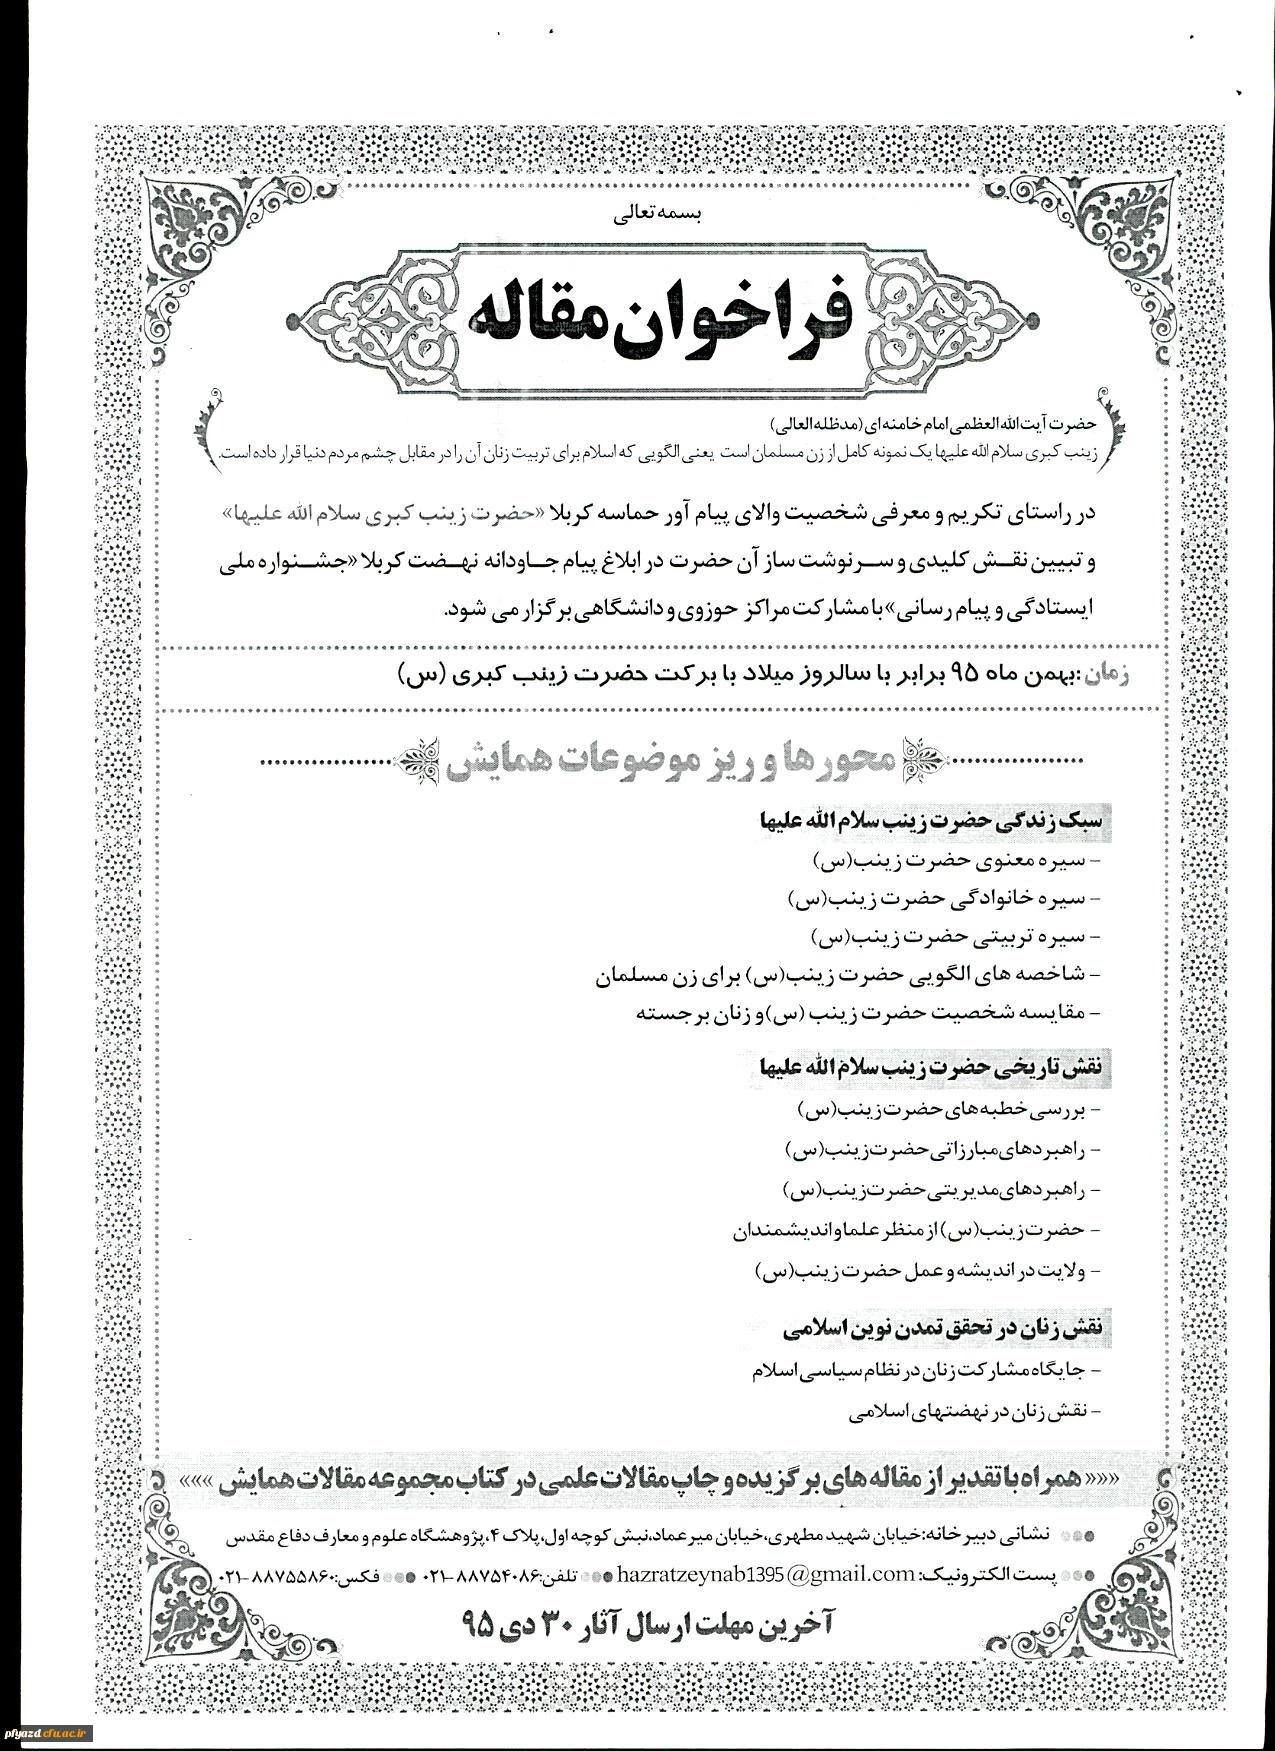 بسمه تعالی
فراخوان مقاله
حضرت آیت الله العظمی امام خامنه ای (مدظله العالی)
زینب کبری سلام الله علیها یک نمونه کامل از زن مسلمان است یعنی الگویی که اسلام برای تربیت زنان آن را در مقابل چشم مردم دنیا قرار داده است.
در راستای تکریم و معرفی شخصیت والای پیام آور حماسه کربلا «حضرت زینب کبری سلام الله علیها»
و تبیین نقش کلیدی و سرنوشت ساز آن حضرت در ابلاغ پیام جاودانه نهضت کربلا «جشنواره ملی
ایستادگی و پیام رسانی» با مشارکت مراکز حوزوی و دانشگاهی برگزار می شود.
زمان: بهمن ماه ۹۵ برابر با سالروز میلاد با برکت حضرت زینب کبری (س)
محورها و ریز موضوعات همایش
سبک زندگی حضرت زینب سلام الله علیها
- سیره معنوی حضرت زینب(س)
- سیره خانوادگی حضرت زینب(س)
- سیره تربیتی حضرت زینب(س)
- شاخصه های الگویی حضرت زینب(س) برای زن مسلمان
- مقایسه شخصیت حضرت زینب (س) و زنان برجسته
نقش تاریخی حضرت زینب سلام الله علیها
- بررسی خطبه های حضرت زینب(س)
- راهبردهای مبارزاتی حضرت زینب(س)
- راهبردهای مدیریتی حضرت زینب(س)
- حضرت زینب(س) از منظر علما و اندیشمندان
- ولایت در اندیشه و عمل حضرت زینب(س)
نقش زنان در تحقق تمدن نوین اسلامی
- جایگاه مشارکت زنان در نظام سیاسی اسلام
- نقش زنان در نهضتهای اسلامی
««« همراه با تقدیر از مقاله های برگزیده و چاپ مقالات علمی در کتاب مجموعه مقالات همایش »»»
نشانی دبیرخانه: خیابان شهید مطهری، خیابان میرعماد، نبش کوچه اول، پلاک ۴، پژوهشگاه علوم و معارف دفاع مقدس
پست الکترونیک: hazratzeynab1395@gmail.com تلفن: ۸۸۷۵۴۰۸۶-۰۲۱ فکس: ۸۸۷۵۵۸۶۰-۰۲۱
آخرین مهلت ارسال آثار ۳۰ دی ۹۵
pfyazd.cfu.ac.ir